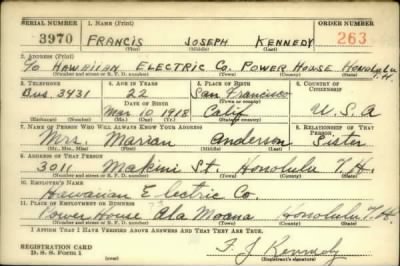 SERIAL NUMBER 1. NAME (Print) ORDER NUMBER
3970 FRANCIS JOSEPH KENNEDY 263
(First) (Middle) (Last)
2. ADDRESS (Print)
c/o HAWAIIAN ELECTRIC CO. POWER HOUSE HONOLULU T.H.
(Number and street or R. F. D. number) (Town) (County) (State)
3. TELEPHONE 4. AGE IN YEARS 5. PLACE OF BIRTH 6. COUNTRY OF CITIZENSHIP
Bus. 3431 22 San Francisco
DATE OF BIRTH (Town or county)
Mar. 10 1918 Calif U.S.A
(Mo.) (Day) (Yr.) (State or country)
7. NAME OF PERSON WHO WILL ALWAYS KNOW YOUR ADDRESS 8. RELATIONSHIP OF THAT PERSON
Mrs. Marian Anderson Sister
(Mr., Mrs., Miss) (First) (Middle) (Last)
9. ADDRESS OF THAT PERSON
3011 Makini St. Honolulu T.H.
(Number and street or R. F. D. number) (Town) (County) (State)
10. EMPLOYER'S NAME
Hawaiian Electric Co.
11. PLACE OF EMPLOYMENT OR BUSINESS
Power House Ala Moana Honolulu T.H
(Number and street or R. F. D. number) (Town) (County) (State)
I AFFIRM THAT I HAVE VERIFIED ABOVE ANSWERS AND THAT THEY ARE TRUE.
REGISTRATION CARD F. J Kennedy
D. S. S. Form 1 (Registrant's signature)